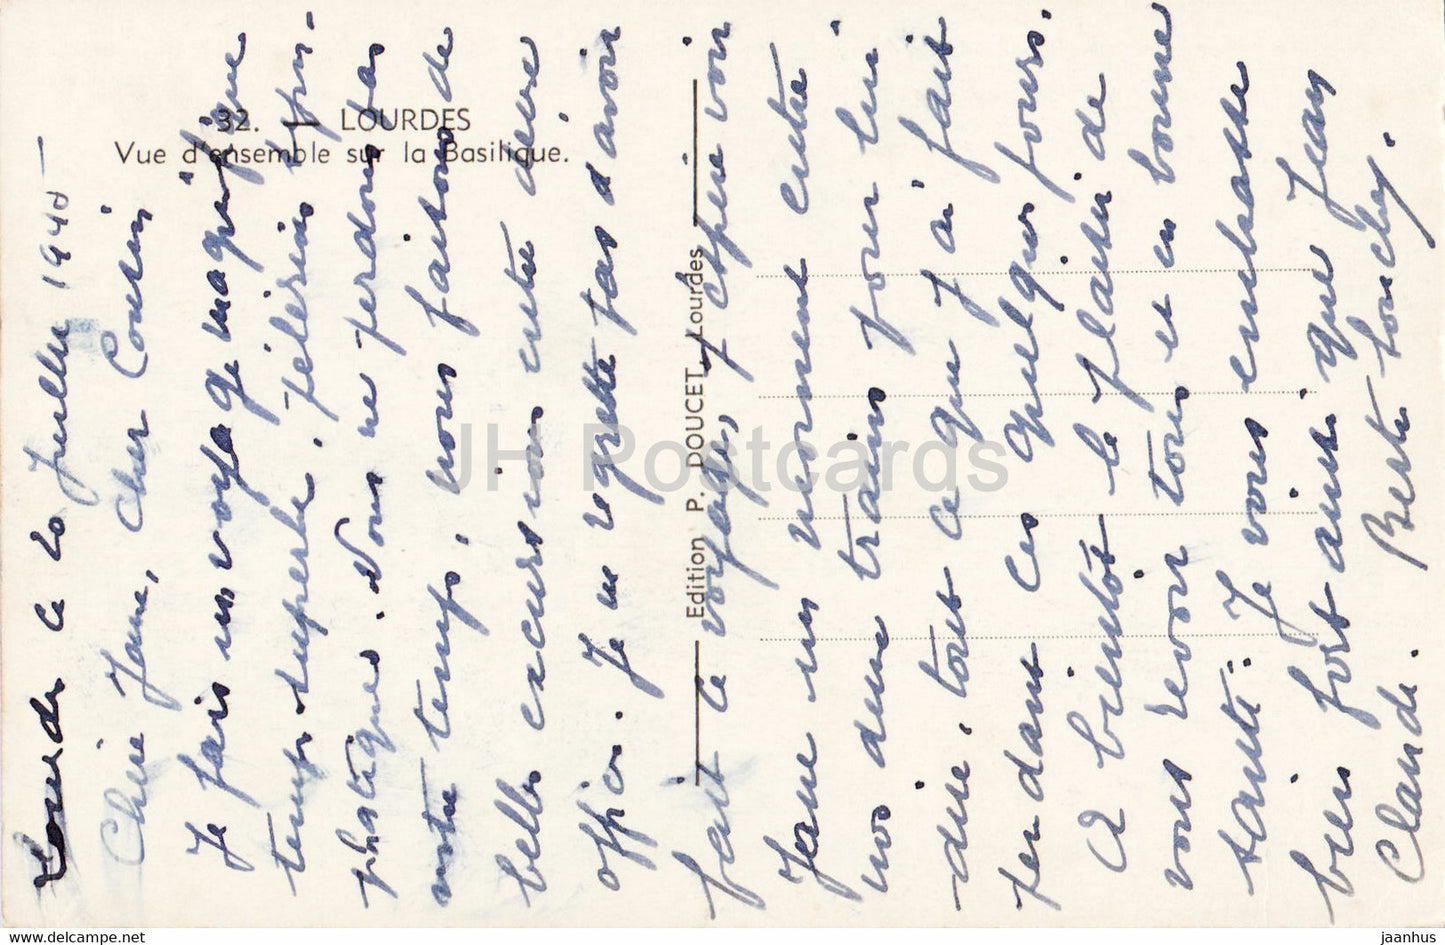 32. — LOURDES
Vue d'ensemble sur la Basilique.
Edition P. DOUCET, Lourdes
Lourdes ce 20 Juillet 1945
Chère Jane, cher Cousin
Je fais un voyage magnifique
temps superbe, pélerins sym-
phatiques. Nous ne perdons pas
notre temps, nous faisons de
belles excursions entre deux
offices. Je ne regrette pas d'avoir
fait le voyage, j'espère voir
Jane un moment entre
nos deux trains pour lui
dire tout ce que j'ai fait
pendant ces quelques jours.
A bientôt le plaisir de
vous revoir tous et en bonne
santé. Je vous embrasse
bien fort ainsi que Jean
Claude. Berthe
JH Postcards
www.delcampe.net
jaanhus